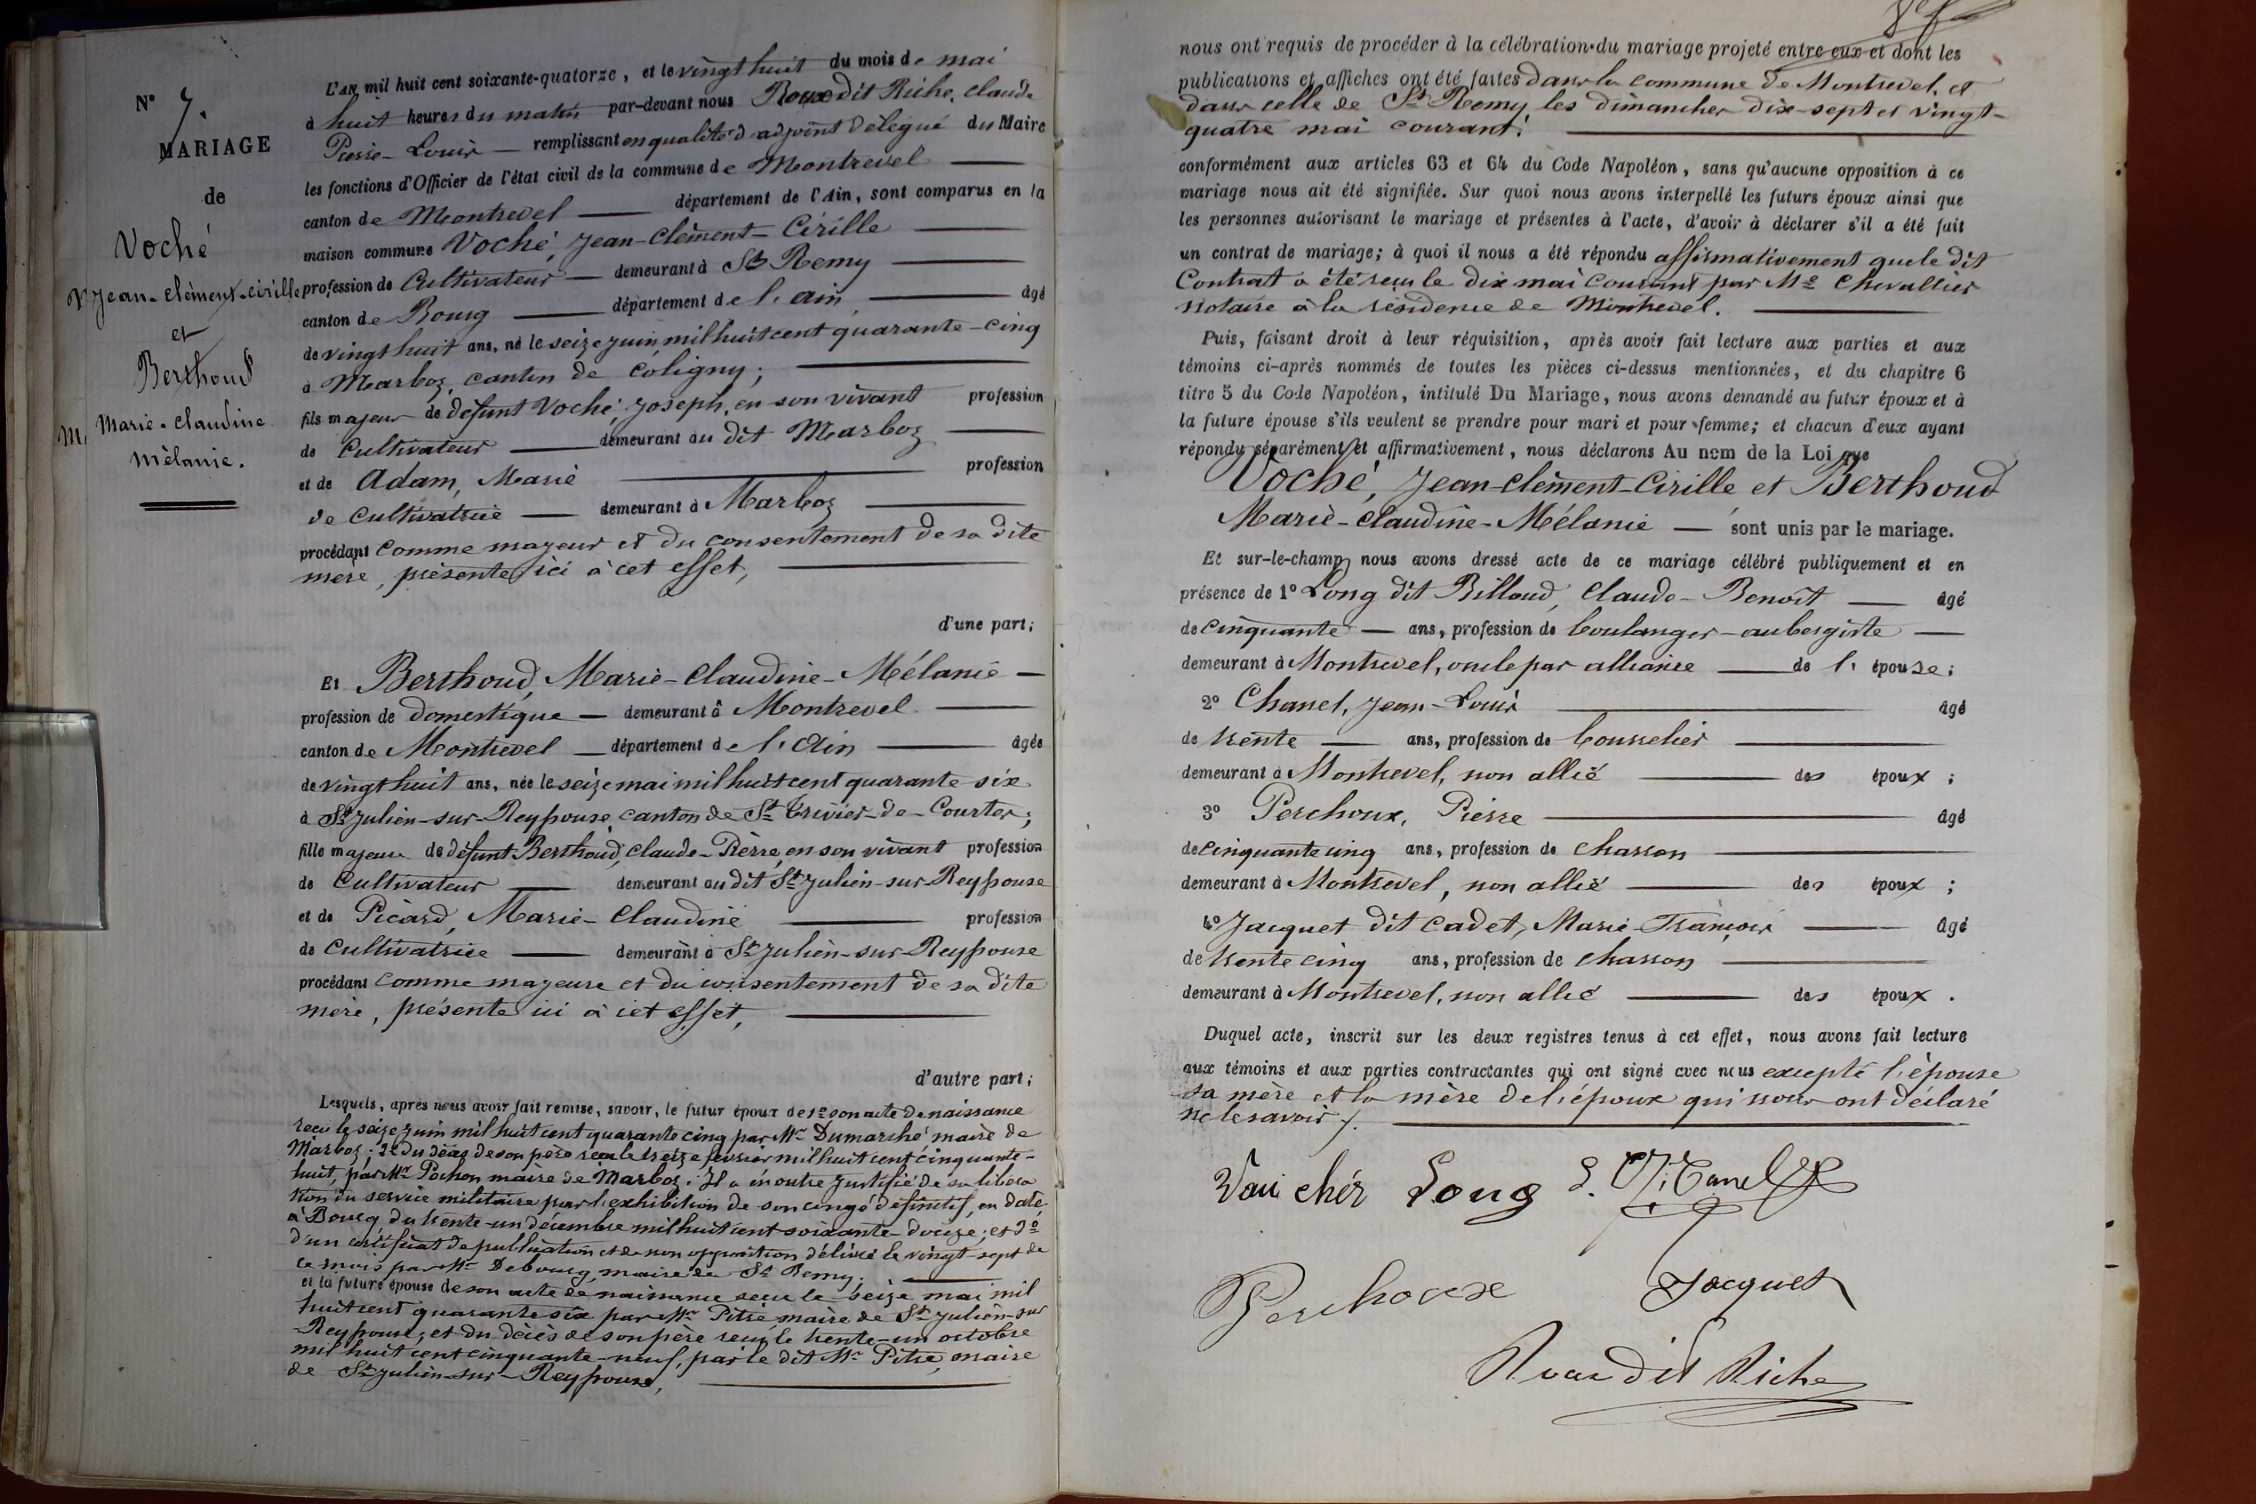 N° 7.
MARIAGE
de
Voché
Jean-Clément-Cirille
et
Berthoud
Marie-Claudine
Mélanie.
L'AN mil huit cent soixante-quatorze, et le vingt huit du mois de mai
à huit heures du matin par-devant nous Roux dit Riche, Claude
Pierre-Louis — remplissant en qualité d'adjoint délégué du Maire
les fonctions d'Officier de l'état civil de la commune de Montrevel
canton de Montrevel — département de l'Ain, sont comparus en la
maison commune Voché, Jean-Clément-Cirille
profession de Cultivateur — demeurant à St Remy
canton de Bourg — département de l'ain, âgé
de vingt huit ans, né le seize juin mil huit cent quarante-cinq
à Marboz, canton de Coligny;
fils majeur de défunt Voché, Joseph, en son vivant profession
de Cultivateur — demeurant au dit Marboz
et de Adam, Marie profession
de Cultivatrice — demeurant à Marboz
procédant comme majeur et du consentement de sa dite
mère, présente ici à cet effet,
d'une part;
Et Berthoud, Marie-Claudine-Mélanie —
profession de domestique — demeurant à Montrevel
canton de Montrevel — département de l'Ain âgée
de vingt huit ans, née le seize mai mil huit cent quarante six
à St Julien-sur-Reyssouze canton de St Trivier-de-Courtes;
fille majeure de défunt Berthoud, Claude-Pierre, en son vivant profession
de Cultivateur — demeurant au dit St Julien-sur-Reyssouze
et de Picard, Marie-Claudine profession
de Cultivatrice — demeurant à St Julien-sur-Reyssouze
procédant comme majeure et du consentement de sa dite
mère, présente ici à cet effet,
d'autre part;
Lesquels, après nous avoir fait remise, savoir, le futur époux de 1° son acte de naissance
reçu le seize juin mil huit cent quarante cinq par Mr Dumarché maire de
Marboz; 2° du décès de son père reçu le treize février mil huit cent cinquante-
huit, par Mr Pochon maire de Marboz. Il a en outre justifié de sa libéra
tion du service militaire par l'exhibition de son congé définitif, en date,
à Bourg, du trente-un décembre mil huit cent soixante-douze; et 3°
d'un certificat de publication et de non opposition délivré le vingt-sept de
ce mois par Mr Debourg, maire de St Remy;
et la future épouse de son acte de naissance reçu le seize mai mil
huit cent quarante six par Mr Pitre maire de St Julien-sur
Reyssouze; et du décès de son père reçu le trente-un octobre
mil huit cent cinquante-neuf, par le dit Mr Pitre, maire
de St Julien-sur-Reyssouze,
nous ont requis de procéder à la célébration du mariage projeté entre eux et dont les
publications et affiches ont été faites dans la commune de Montrevel, et
dans celle de St Remy les dimanches dix-sept et vingt-
quatre mai courant;
conformément aux articles 63 et 64 du Code Napoléon, sans qu'aucune opposition à ce
mariage nous ait été signifiée. Sur quoi nous avons interpellé les futurs époux ainsi que
les personnes autorisant le mariage et présentes à l'acte, d'avoir à déclarer s'il a été fait
un contrat de mariage; à quoi il nous a été répondu affirmativement que le dit
Contrat a été reçu le dix mai courant par Me Chevallier
Notaire à la résidence de Montrevel.
Puis, faisant droit à leur réquisition, après avoir fait lecture aux parties et aux
témoins ci-après nommés de toutes les pièces ci-dessus mentionnées, et du chapitre 6
titre 5 du Code Napoléon, intitulé Du Mariage, nous avons demandé au futur époux et à
la future épouse s'ils veulent se prendre pour mari et pour femme; et chacun d'eux ayant
répondu séparément et affirmativement, nous déclarons Au nom de la Loi que
Voché, Jean-Clément-Cirille et Berthoud
Marie-Claudine-Mélanie — sont unis par le mariage.
Et sur-le-champ nous avons dressé acte de ce mariage célébré publiquement et en
présence de 1° Long dit Billoud, Claude-Benoît — âgé
de cinquante — ans, profession de boulanger-aubergiste —
demeurant à Montrevel, oncle par alliance — de l' épouse;
2° Chanel, Jean-Louis âgé
de trente — ans, profession de bourrelier
demeurant à Montrevel, non allié des époux;
3° Perchoux, Pierre âgé
de cinquante cinq ans, profession de charron
demeurant à Montrevel, non allié des époux;
4° Jacquet dit Cadet, Marie-François âgé
de trente cinq ans, profession de charron
demeurant à Montrevel, non allié des époux.
Duquel acte, inscrit sur les deux registres tenus à cet effet, nous avons fait lecture
aux témoins et aux parties contractantes qui ont signé avec nous excepté l'épouse
sa mère et la mère de l'époux qui nous ont déclaré
ne le savoir.
Long
Perchoux Jacquet
Roux dit Riche